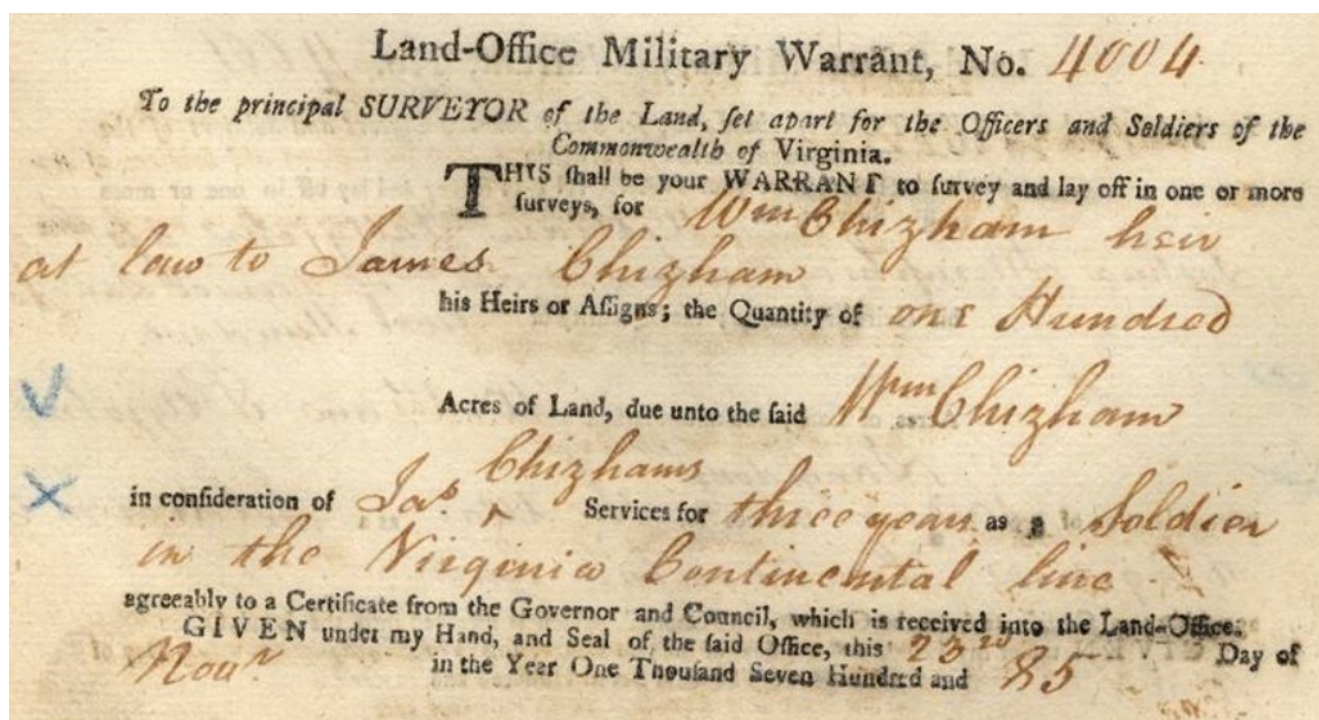 Land-Office Military Warrant, No. 4004
To the principal SURVEYOR of the Land, ſet apart for the Officers and Soldiers of the
Commonwealth of Virginia.
THIS ſhall be your WARRANT to ſurvey and lay off in one or more
ſurveys, for Wm Chizham heir
at law to James Chizham
his Heirs or Aſſigns; the Quantity of one Hundred
Acres of Land, due unto the ſaid Wm Chizham
in conſideration of Jas. ^ Chizhams Services for three years as a Soldier
in the Virginia Continental line
agreeably to a Certificate from the Governor and Council, which is received into the Land-Office.
GIVEN under my Hand, and Seal of the ſaid Office, this 23rd Day of
Novr in the Year One Thouſand Seven Hundred and 85